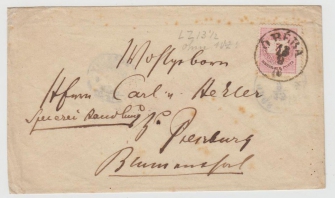 LZ 13½
Ó BÉBA
Wohlgeborn
Herrn Carl v. Hekler
Spezerei Handlung
Zu Presburg
Blumenthal